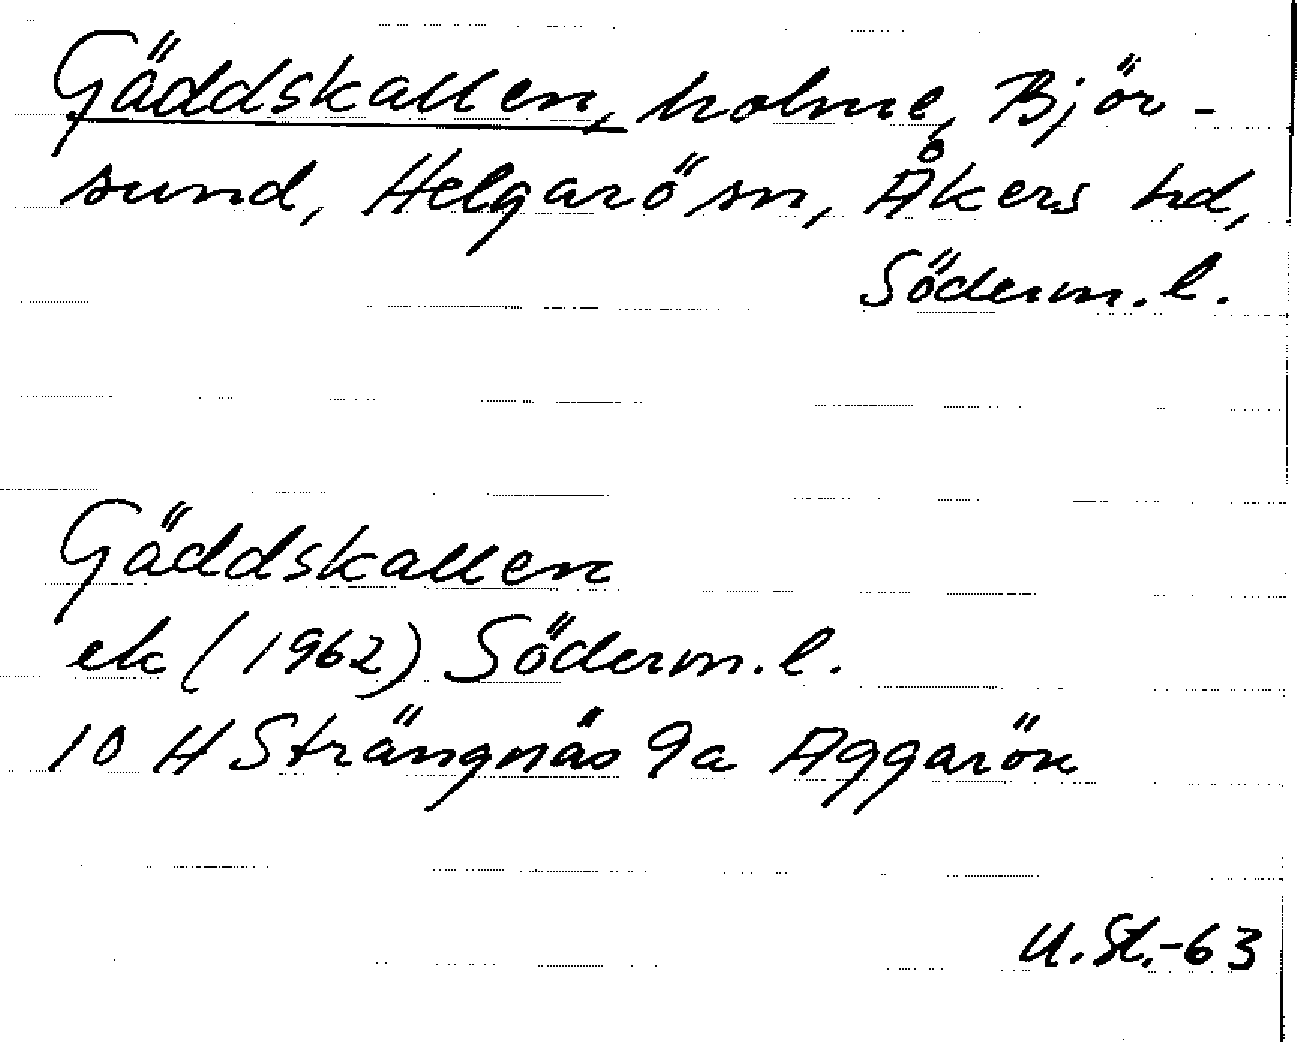 Gäddskallen, holme, Björ-
sund, Helgarö sn, Åkers hd,
Söderm. l.
Gäddskallen
ek (1962) Söderm. l.
10 H Strängnäs 9a Aggarön
U. St. -63